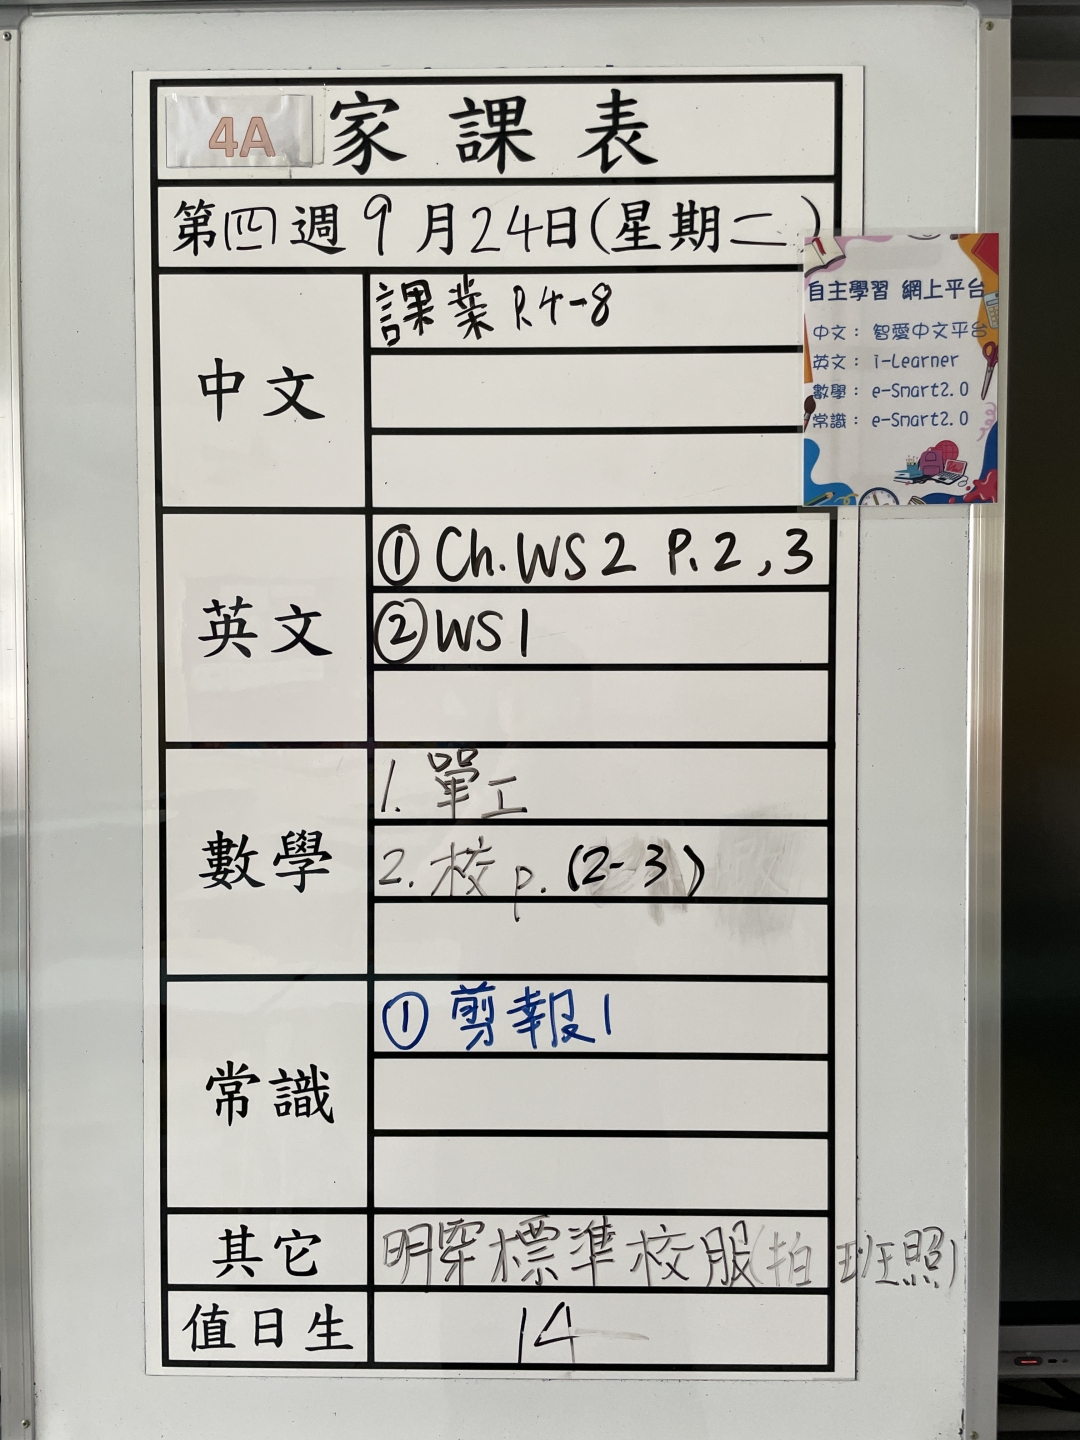 4A 家課表
第四週 9月24日(星期二)
中文
課業 P.4-8
自主學習 網上平台
中文：智愛中文平台
英文：i-Learner
數學：e-Smart2.0
常識：e-Smart2.0
英文
① Ch.WS2 P.2,3
② WS1
數學
1. 單工
2. 校 p. (2-3)
常識
① 剪報1
其它
明穿標準校服(拍班照)
值日生
14